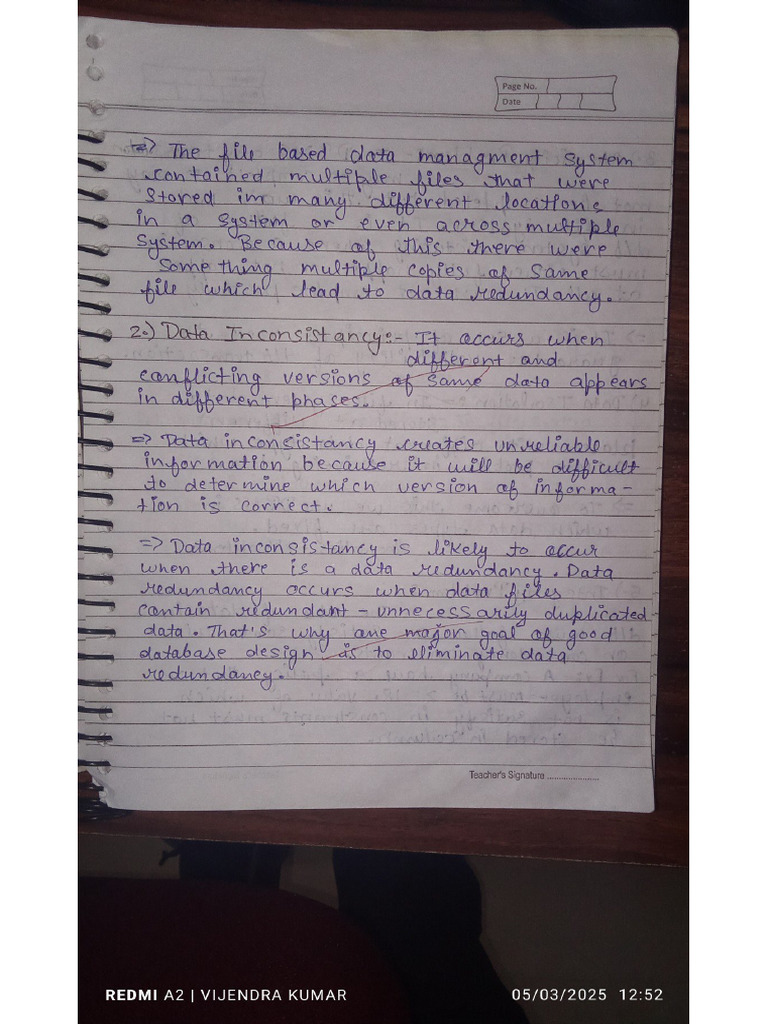 Page No.
Date
=> The file based data managment system
contained multiple files that were
stored im many different locations
in a system or even across multiple
system. Because of this there were
something multiple copies of same
file which lead to data redundancy.
2.) Data Inconsistancy:- It occurs when
different and
conflicting versions of same data appears
in different phases.
=> Data inconsistancy creates unreliable
information because it will be difficult
to determine which version of informa-
tion is correct.
=> Data inconsistancy is likely to occur
when there is a data redundancy. Data
redundancy occurs when data files
contain redundant - unnecessarily duplicated
data. That's why one major goal of good
database design is to eliminate data
redundancy.
Teacher's Signature ......................
REDMI A2 | VIJENDRA KUMAR
05/03/2025 12:52